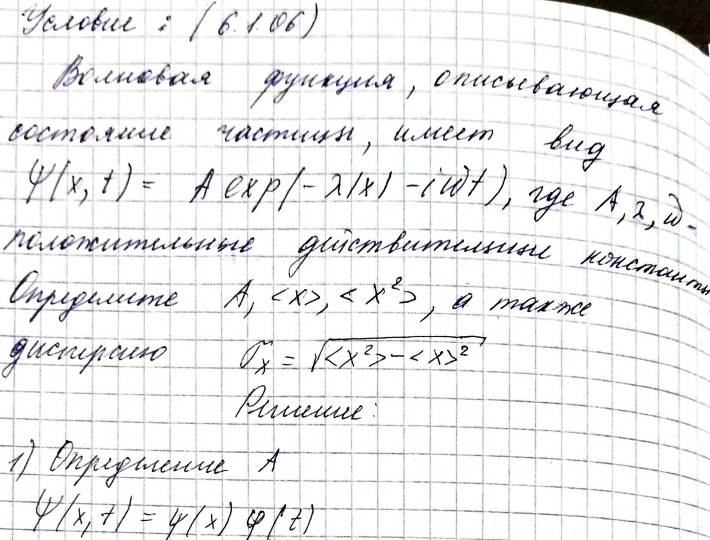 Условие : (6.1.06)
Волновая функция, описывающая
состояние частицы, имеет вид
Ψ(x, t) = A exp(-λ|x| - iωt), где A, λ, ω-
положительные действительные константы
Определите A, <x>, <x²>, а также
дисперсию σₓ = √<x²>-<x>²
Решение:
1) Определение A
Ψ(x, t) = ψ(x) φ(t)